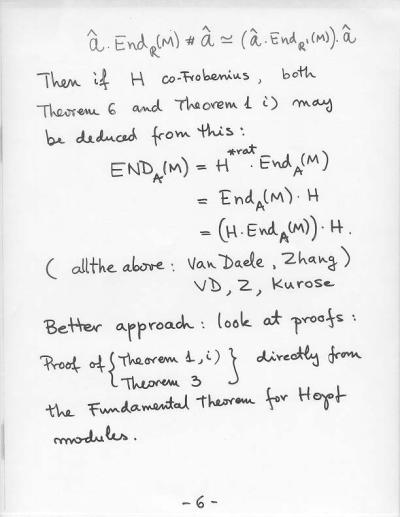 â · End_R(M) # â ≃ (â · End_R'(M)) · â
Then if H co-Frobenius, both
Theorem 6 and Theorem 1 i) may
be deduced from this:
END_A(M) = H^*rat · End_A(M)
= End_A(M) · H
= (H · End_A(M)) · H.
( all the above : Van Daele, Zhang )
VD, Z, Kurose
Better approach : look at proofs :
Proof of { Theorem 1, i) } directly from
{ Theorem 3 }
the Fundamental Theorem for Hopf
modules.
- 6 -